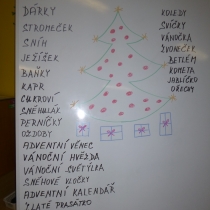 DÁRKY
STROMEČEK
SNÍH
JEŽÍŠEK
BAŇKY
KAPR
CUKROVÍ
SNĚHULÁK
PERNÍČKY
OZDOBY
ADVENTNÍ VĚNEC
VÁNOČNÍ HVĚZDA
VÁNOČNÍ SVĚTÝLKA
SNĚHOVÉ VLOČKY
ADVENTNÍ KALENDÁŘ
ZLATÉ PRASÁTKO
KOLEDY
SVÍČKY
VÁNOČKA
ZVONEČEK
BETLÉM
KOMETA
JABLÍČKO
OŘECHY